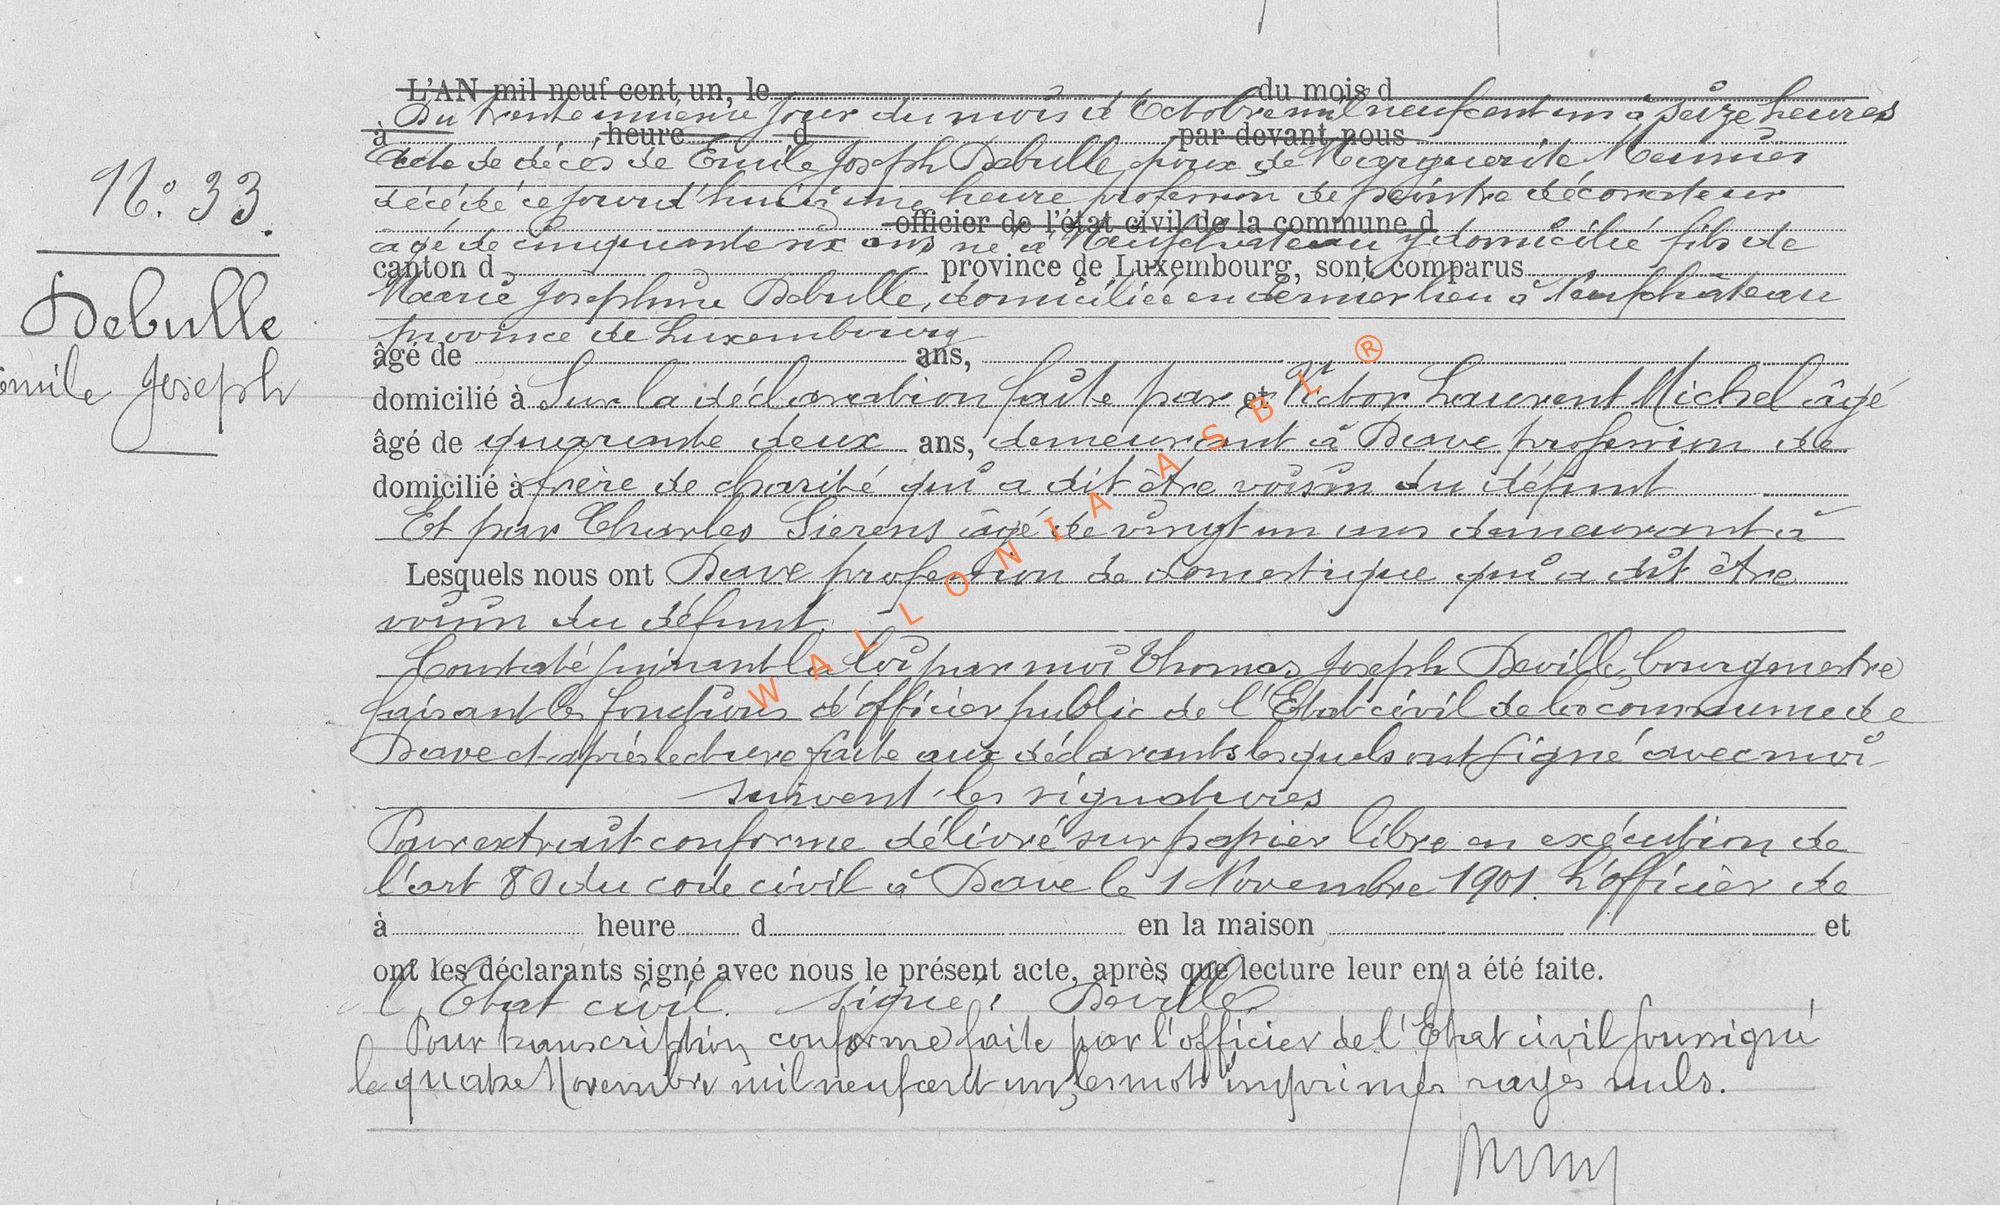 N° 33.
Debulle
Emile Joseph
L'AN mil neuf cent un, le du mois d
Du trente unième jour du mois d'Octobre mil neuf cent un à seize heures
à heure d par devant nous
Acte de décès de Emile Joseph Debulle, époux de Marguerite Meunier
décédé ce jourd'hui à une heure profession de peintre décorateur
officier de l'état civil de la commune d
âgé de cinquante six ans né à Neufchateau y domicilié fils de
canton d province de Luxembourg, sont comparus
Marie Josephine Debulle, domiciliée en dernier lieu à Neufchâteau
province de Luxembourg
âgé de ans,
domicilié à Sur la déclaration faite par et Victor Laurent Michel âgé
âgé de quarante deux ans, demeurant à Dave profession de
domicilié à frère de charité qui a dit être voisin du défunt
Et par Charles Sierens âgé de vingt un ans demeurant à
Lesquels nous ont Dave profession de domestique qui a dit être
voisin du défunt.
Constaté suivant la loi par moi Thomas Joseph Deville, bourgmestre
faisant les fonctions d'officier public de l'Etat civil de la commune de
Dave et après lecture faite aux déclarants lesquels ont signé avec moi
suivent les signatures
Pour extrait conforme délivré sur papier libre en exécution de
l'art 80 du code civil à Dave le 1 Novembre 1901. L'officier de
à heure d en la maison et
ont les déclarants signé avec nous le présent acte, après que lecture leur en a été faite.
l'Etat civil. signé: Deville
Pour transcription conforme faite par l'officier de l'Etat civil soussigné
le quatre Novembre mil neuf cent un, les mots imprimés rayés nuls.
WALLONIA ASBL ®